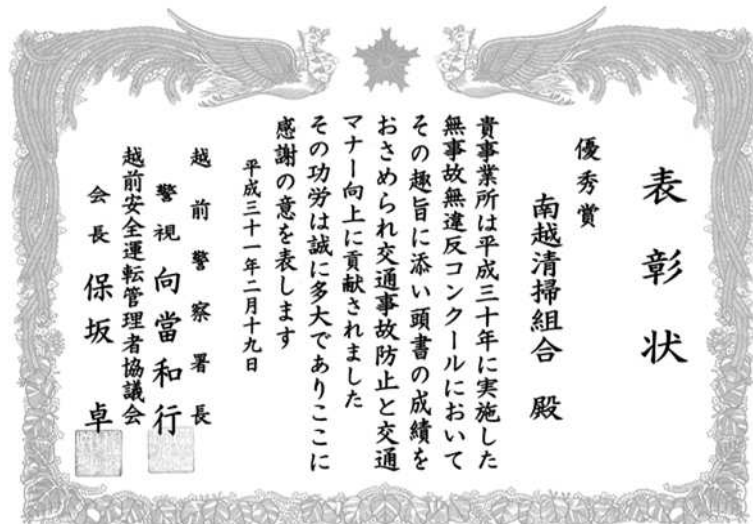 表彰状
優秀賞
南越清掃組合 殿
貴事業所は平成三十年に実施した
無事故無違反コンクールにおいて
その趣旨に添い頭書の成績を
おさめられ交通事故防止と交通
マナー向上に貢献されました
その功労は誠に多大でありここに
感謝の意を表します
平成三十一年二月十九日
越前警察署長
警視 向當和行
越前安全運転管理者協議会
会長 保坂 卓